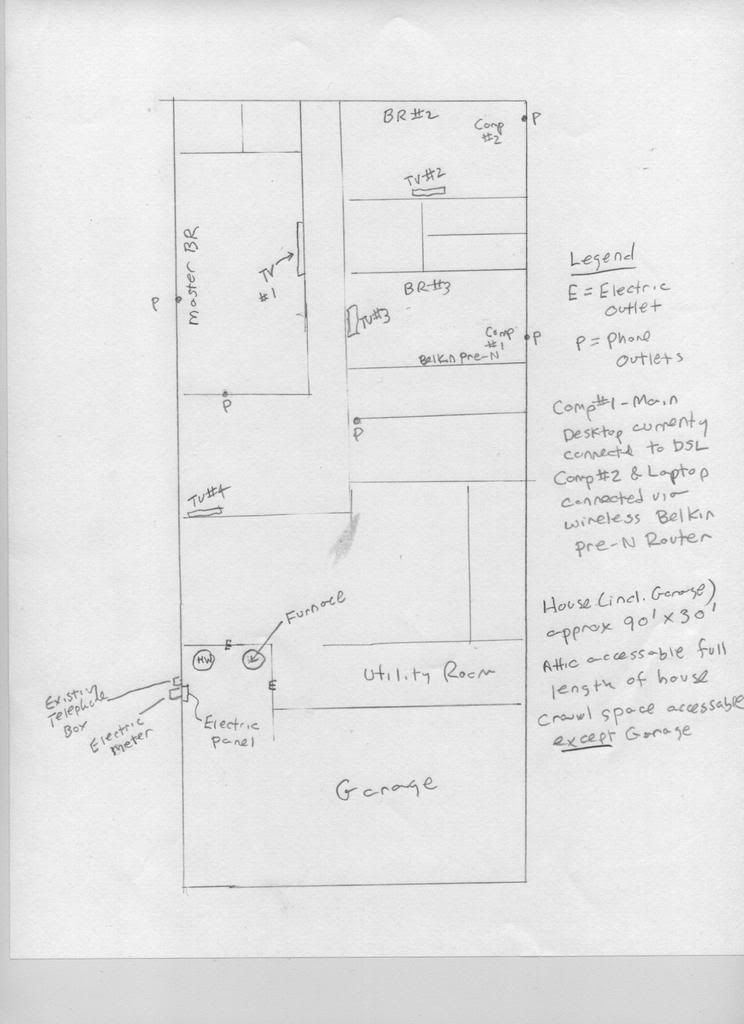 BR#2
Comp
#2
P
TV#2
master BR
TV
#1
P
BR#3
TV#3
Comp
#1
P
Belkin Pre-N
P
P
TV#4
Legend
E = Electric
outlet
P = Phone
outlets
Comp#1-Main
Desktop currently
connected to DSL
Comp#2 & Laptop
connected via
wireless Belkin
Pre-N Router
House (incl. Garage)
approx 90' x 30'
Attic accessable full
length of house
Crawl space accessable
except Garage
Furnace
E
HW
E
Utility Room
Existing
Telephone
Box
Electric
meter
Electric
Panel
Garage